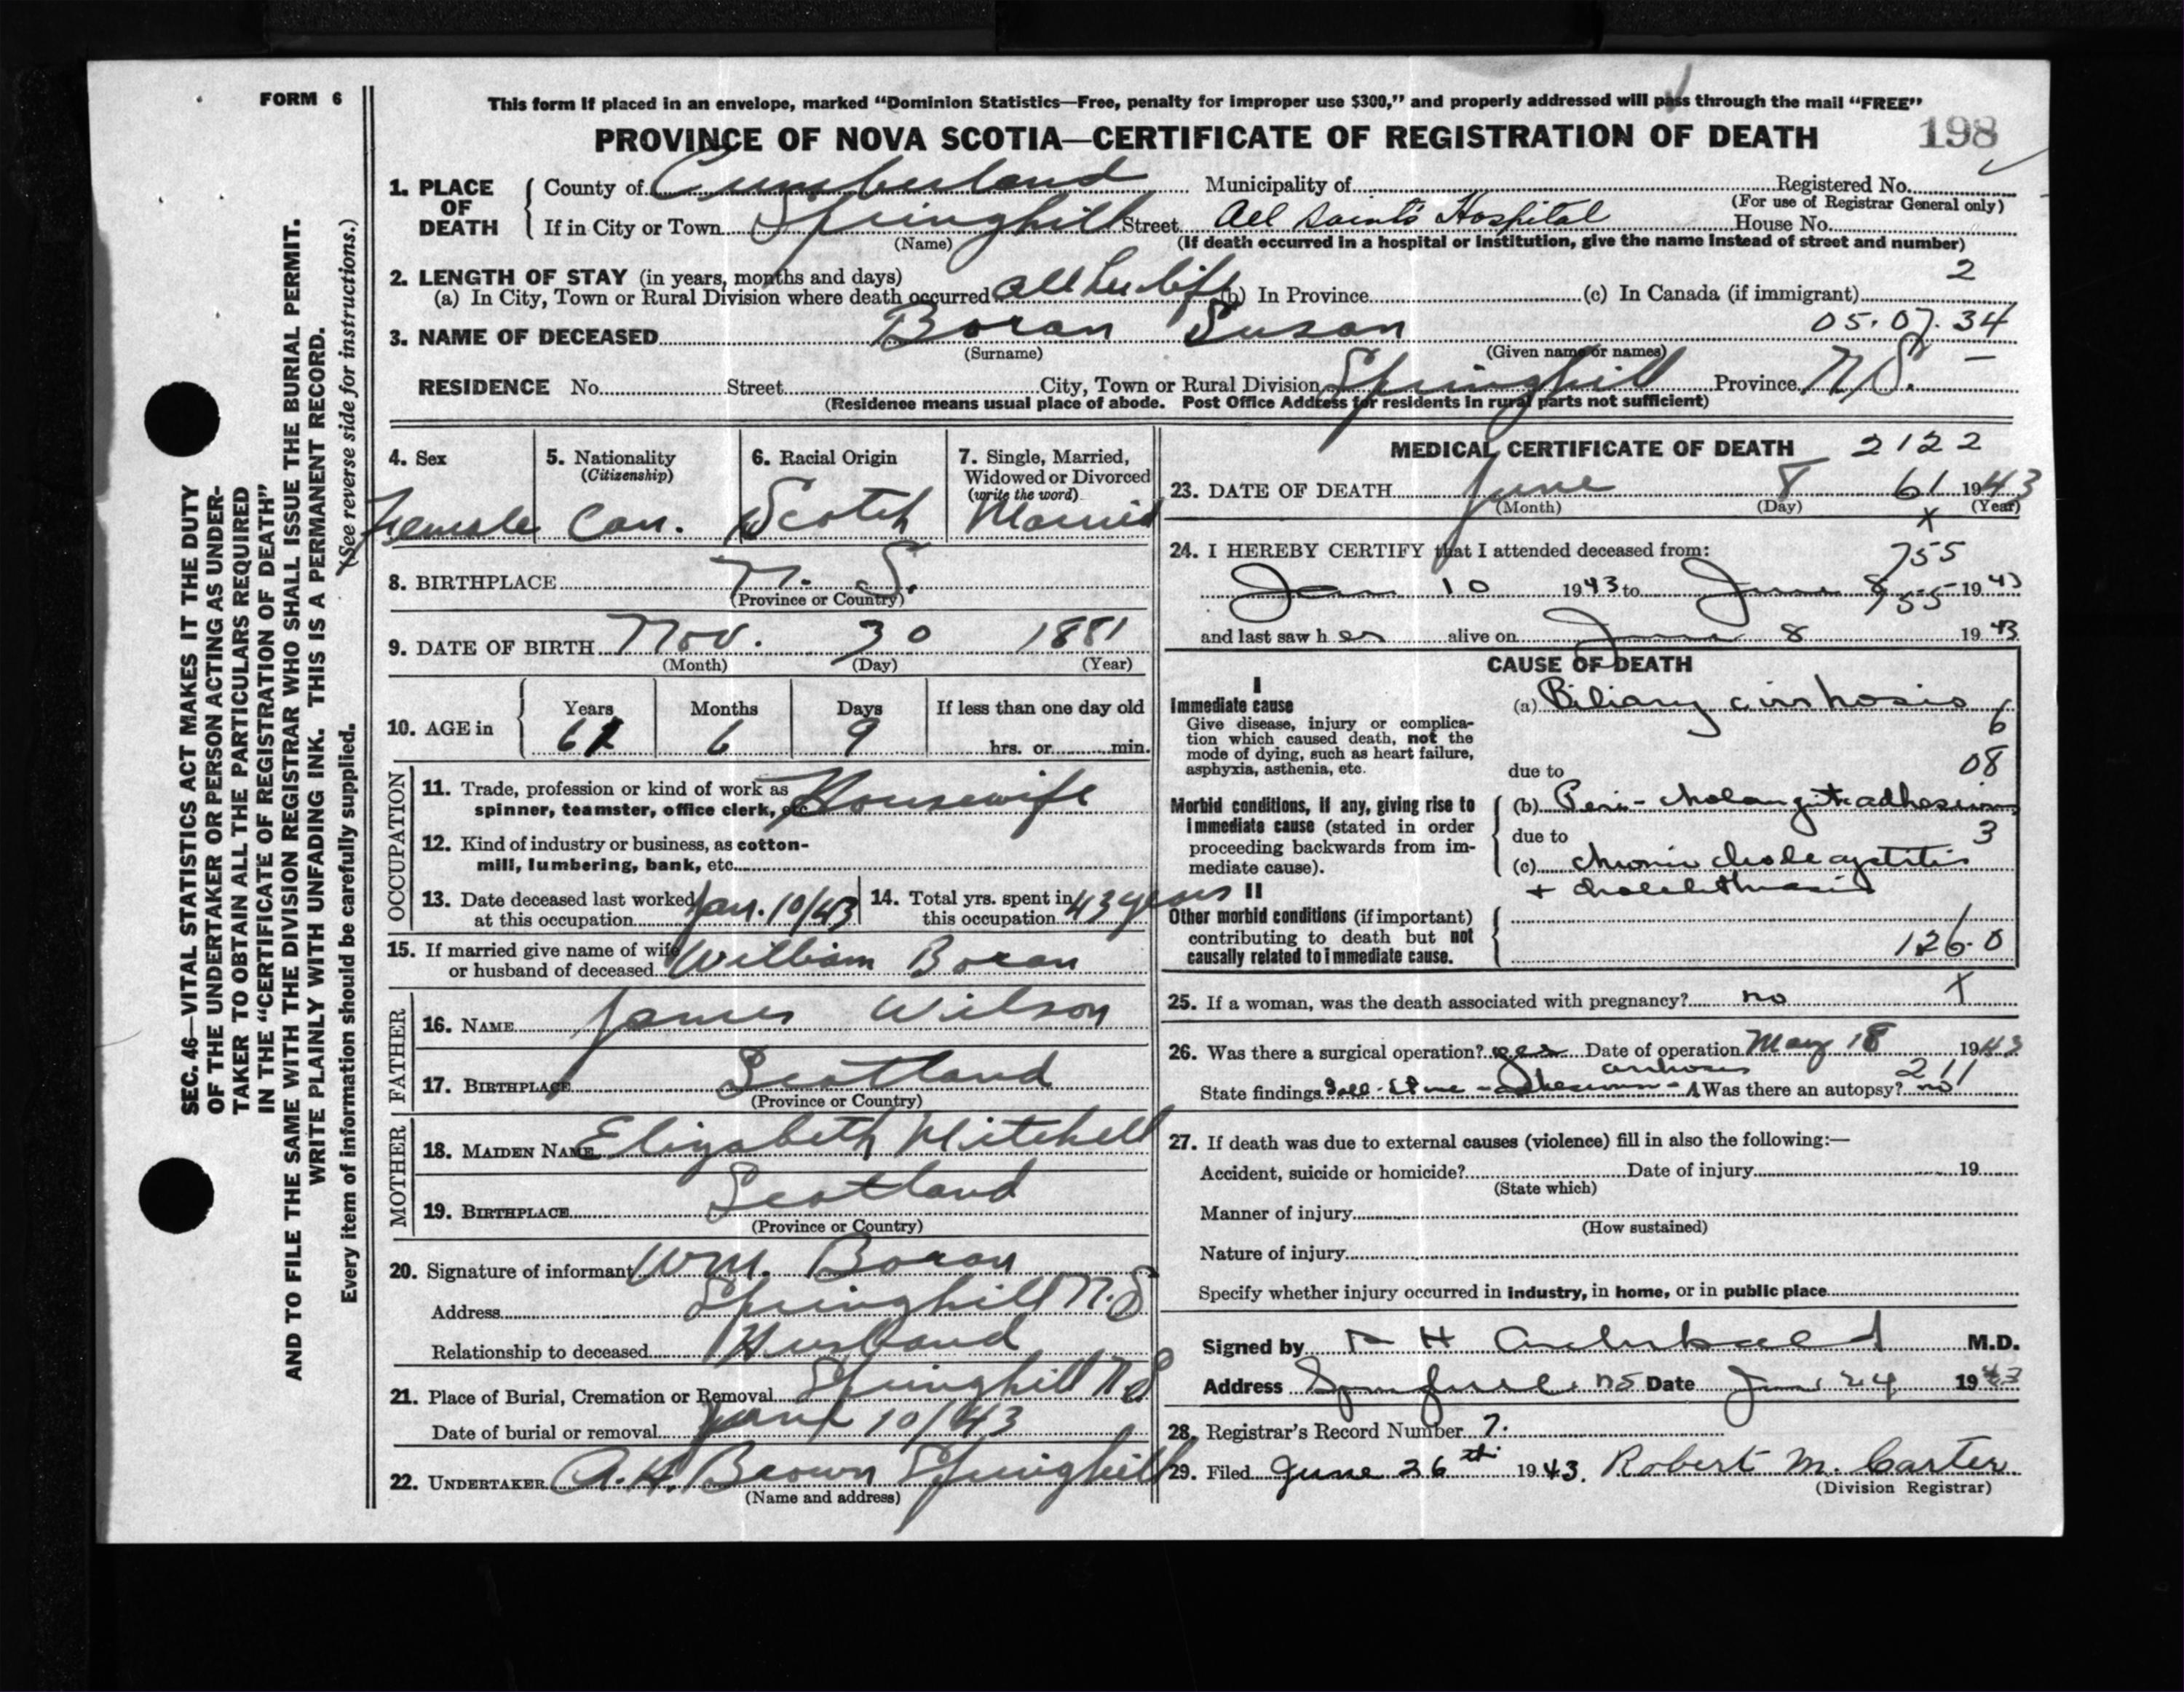 FORM 6
This form if placed in an envelope, marked “Dominion Statistics—Free, penalty for improper use $300,” and properly addressed will pass through the mail “FREE”
PROVINCE OF NOVA SCOTIA—CERTIFICATE OF REGISTRATION OF DEATH 198
1. PLACE OF DEATH
County of Cumberland Municipality of Registered No.
(For use of Registrar General only)
If in City or Town Springhill Street All Saints Hospital House No.
(Name) (If death occurred in a hospital or institution, give the name instead of street and number)
2. LENGTH OF STAY (in years, months and days) 2
(a) In City, Town or Rural Division where death occurred all her life (b) In Province (c) In Canada (if immigrant)
3. NAME OF DECEASED Boran Susan 05.07.34
(Surname) (Given name or names)
RESIDENCE No. Street City, Town or Rural Division Springhill Province N.S. —
(Residence means usual place of abode. Post Office Address for residents in rural parts not sufficient)
4. Sex
Female
5. Nationality
(Citizenship)
Can.
6. Racial Origin
Scotch
7. Single, Married,
Widowed or Divorced
(write the word)
Married
8. BIRTHPLACE N. S.
(Province or Country)
9. DATE OF BIRTH Nov. 30 1881
(Month) (Day) (Year)
10. AGE in
Years Months Days If less than one day old
61 6 9 hrs. or min.
OCCUPATION
11. Trade, profession or kind of work as
spinner, teamster, office clerk, etc. Housewife
12. Kind of industry or business, as cotton-
mill, lumbering, bank, etc.
13. Date deceased last worked
at this occupation Jan. 10/43
14. Total yrs. spent in
this occupation 43 years
15. If married give name of wife
or husband of deceased William Boran
FATHER
16. NAME James Wilson
17. BIRTHPLACE Scotland
(Province or Country)
MOTHER
18. MAIDEN NAME Elizabeth Mitchell
19. BIRTHPLACE Scotland
(Province or Country)
20. Signature of informant Wm. Boran
Address Springhill N.S
Relationship to deceased Husband
21. Place of Burial, Cremation or Removal Springhill N S
Date of burial or removal June 10/43
22. UNDERTAKER A. H. Brown Springhill
(Name and address)
MEDICAL CERTIFICATE OF DEATH 2122
23. DATE OF DEATH June 8 61 1943
(Month) (Day) (Year)
x
24. I HEREBY CERTIFY that I attended deceased from:
755
Jan 10 1943 to June 8 1943
755
and last saw her alive on June 8 1943
CAUSE OF DEATH
I
Immediate cause
Give disease, injury or complica-
tion which caused death, not the
mode of dying, such as heart failure,
asphyxia, asthenia, etc.
(a) Biliary cirrhosis
6
08
due to
Morbid conditions, if any, giving rise to
immediate cause (stated in order
proceeding backwards from im-
mediate cause).
(b) Peri-cholangitic adhesions
due to 3
(c) chronic cholecystitis
+ cholelithiasis
II
Other morbid conditions (if important)
contributing to death but not
causally related to immediate cause.
126.0
25. If a woman, was the death associated with pregnancy? no x
26. Was there a surgical operation? yes Date of operation May 18 1943
cirrhosis 211
State findings Gall-stone - adhesions - Was there an autopsy? no
27. If death was due to external causes (violence) fill in also the following:—
Accident, suicide or homicide? Date of injury 19
(State which)
Manner of injury
(How sustained)
Nature of injury
Specify whether injury occurred in industry, in home, or in public place
Signed by H Archibald M.D.
Address Springhill NS Date June 24 1943
28. Registrar's Record Number 7.
29. Filed June 26th 1943. Robert M. Carter
(Division Registrar)
SEC. 46—VITAL STATISTICS ACT MAKES IT THE DUTY
OF THE UNDERTAKER OR PERSON ACTING AS UNDER-
TAKER TO OBTAIN ALL THE PARTICULARS REQUIRED
IN THE “CERTIFICATE OF REGISTRATION OF DEATH”
AND TO FILE THE SAME WITH THE DIVISION REGISTRAR WHO SHALL ISSUE THE BURIAL PERMIT.
WRITE PLAINLY WITH UNFADING INK. THIS IS A PERMANENT RECORD.
Every item of information should be carefully supplied. (See reverse side for instructions.)